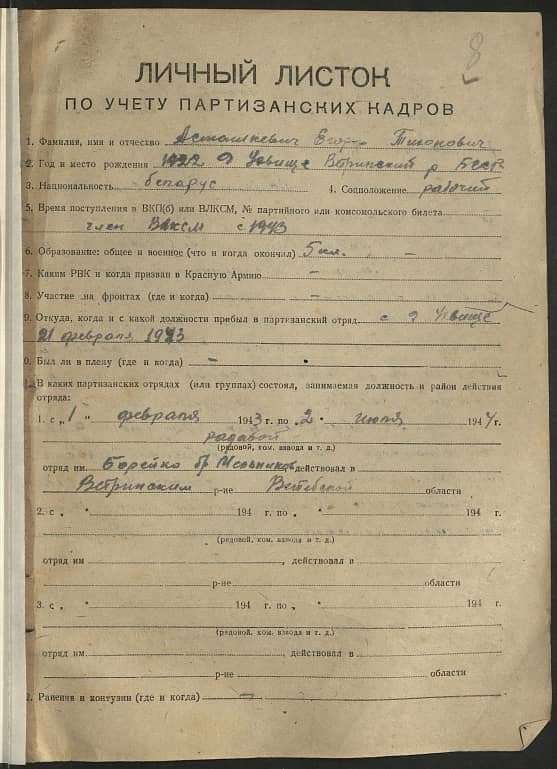 8
ЛИЧНЫЙ ЛИСТОК
ПО УЧЕТУ ПАРТИЗАНСКИХ КАДРОВ
1. Фамилия, имя и отчество Асташкевич Егор Тихонович
2. Год и место рождения 1922 д Убвище Ветринский р БССР
3. Национальность беларус 4. Соцположение рабочий
5. Время поступления в ВКП(б) или ВЛКСМ, № партийного или комсомольского билета
член ВЛКСМ с 1943
6. Образование: общее и военное (что и когда окончил) 5 кл. —
7. Каким РВК и когда призван в Красную Армию —
8. Участие на фронтах (где и когда) —
9. Откуда, когда и с какой должности прибыл в партизанский отряд с д
21 февраля 1943
0. Был ли в плену (где и когда) —
1. В каких партизанских отрядах (или группах) состоял, занимаемая должность и район действия
отряда:
1. с „ 1 " февраля 1943 г. по „ 2 " июля 1944 г.
радавой
(рядовой, ком. взвода и т. д.)
отряд им Борейко бр Мельников действовал в
Ветринским р-не Витебской области
2. с „ " 194 г. по „ " 194 г.
(рядовой, ком. взвода и т. д.)
отряд им , действовал в
р-не области
3. с „ " 194 г. по „ " 194 г.
(рядовой, ком. взвода и т. д.)
отряд им , действовал в
р-не области
2. Ранения и контузии (где и когда) —